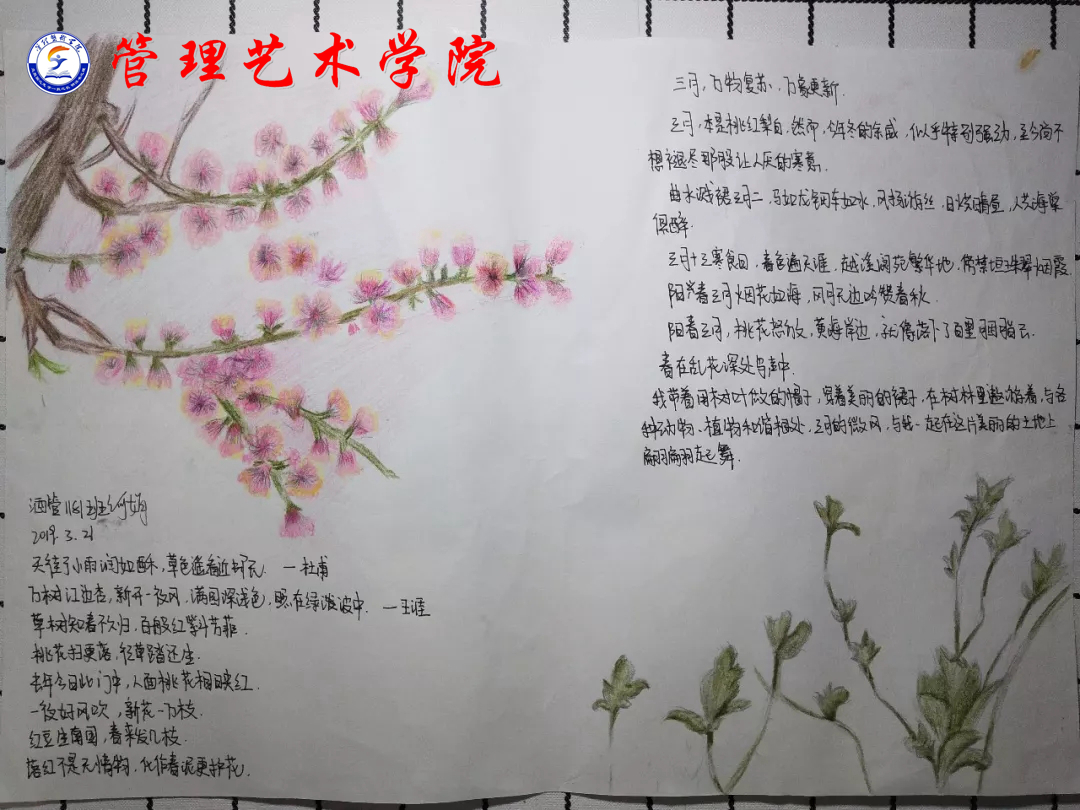 管理艺术学院
三月,万物复苏,万象更新.
三月,本是桃红梨白,然而,今年冬的余威,似乎特别强劲,至今尚不
想褪尽那股让人厌的寒意.
曲水溅裙三月二,马如龙钿车如水,风扬游丝,日烘晴昼,人共海棠
俱醉.
三月十三寒食日,春色遍天涯,越溪阆苑繁华地,傍禁垣珠翠烟霞.
阳春三月烟花如海,风月无边吟赞春秋.
阳春三月,桃花怒放,黄海岸边,就像落下了百里胭脂云.
春在乱花深处鸟声中.
我带着用树叶做的帽子,穿着美丽的裙子,在树林里遨游着,与各
种动物、植物和谐相处,三月的微风,与我一起在这片美丽的土地上
翩翩起舞.
酒管1181班
2019.3.21
天街小雨润如酥,草色遥看近却无. —杜甫
万树江边杏,新开一夜风.满园深浅色,照在绿波中. —王涯
草树知春不久归,百般红紫斗芳菲.
桃花扫更落,径草踏还生.
去年今日此门中,人面桃花相映红.
一夜好风吹,新花一万枝.
红豆生南国,春来发几枝.
落红不是无情物,化作春泥更护花.